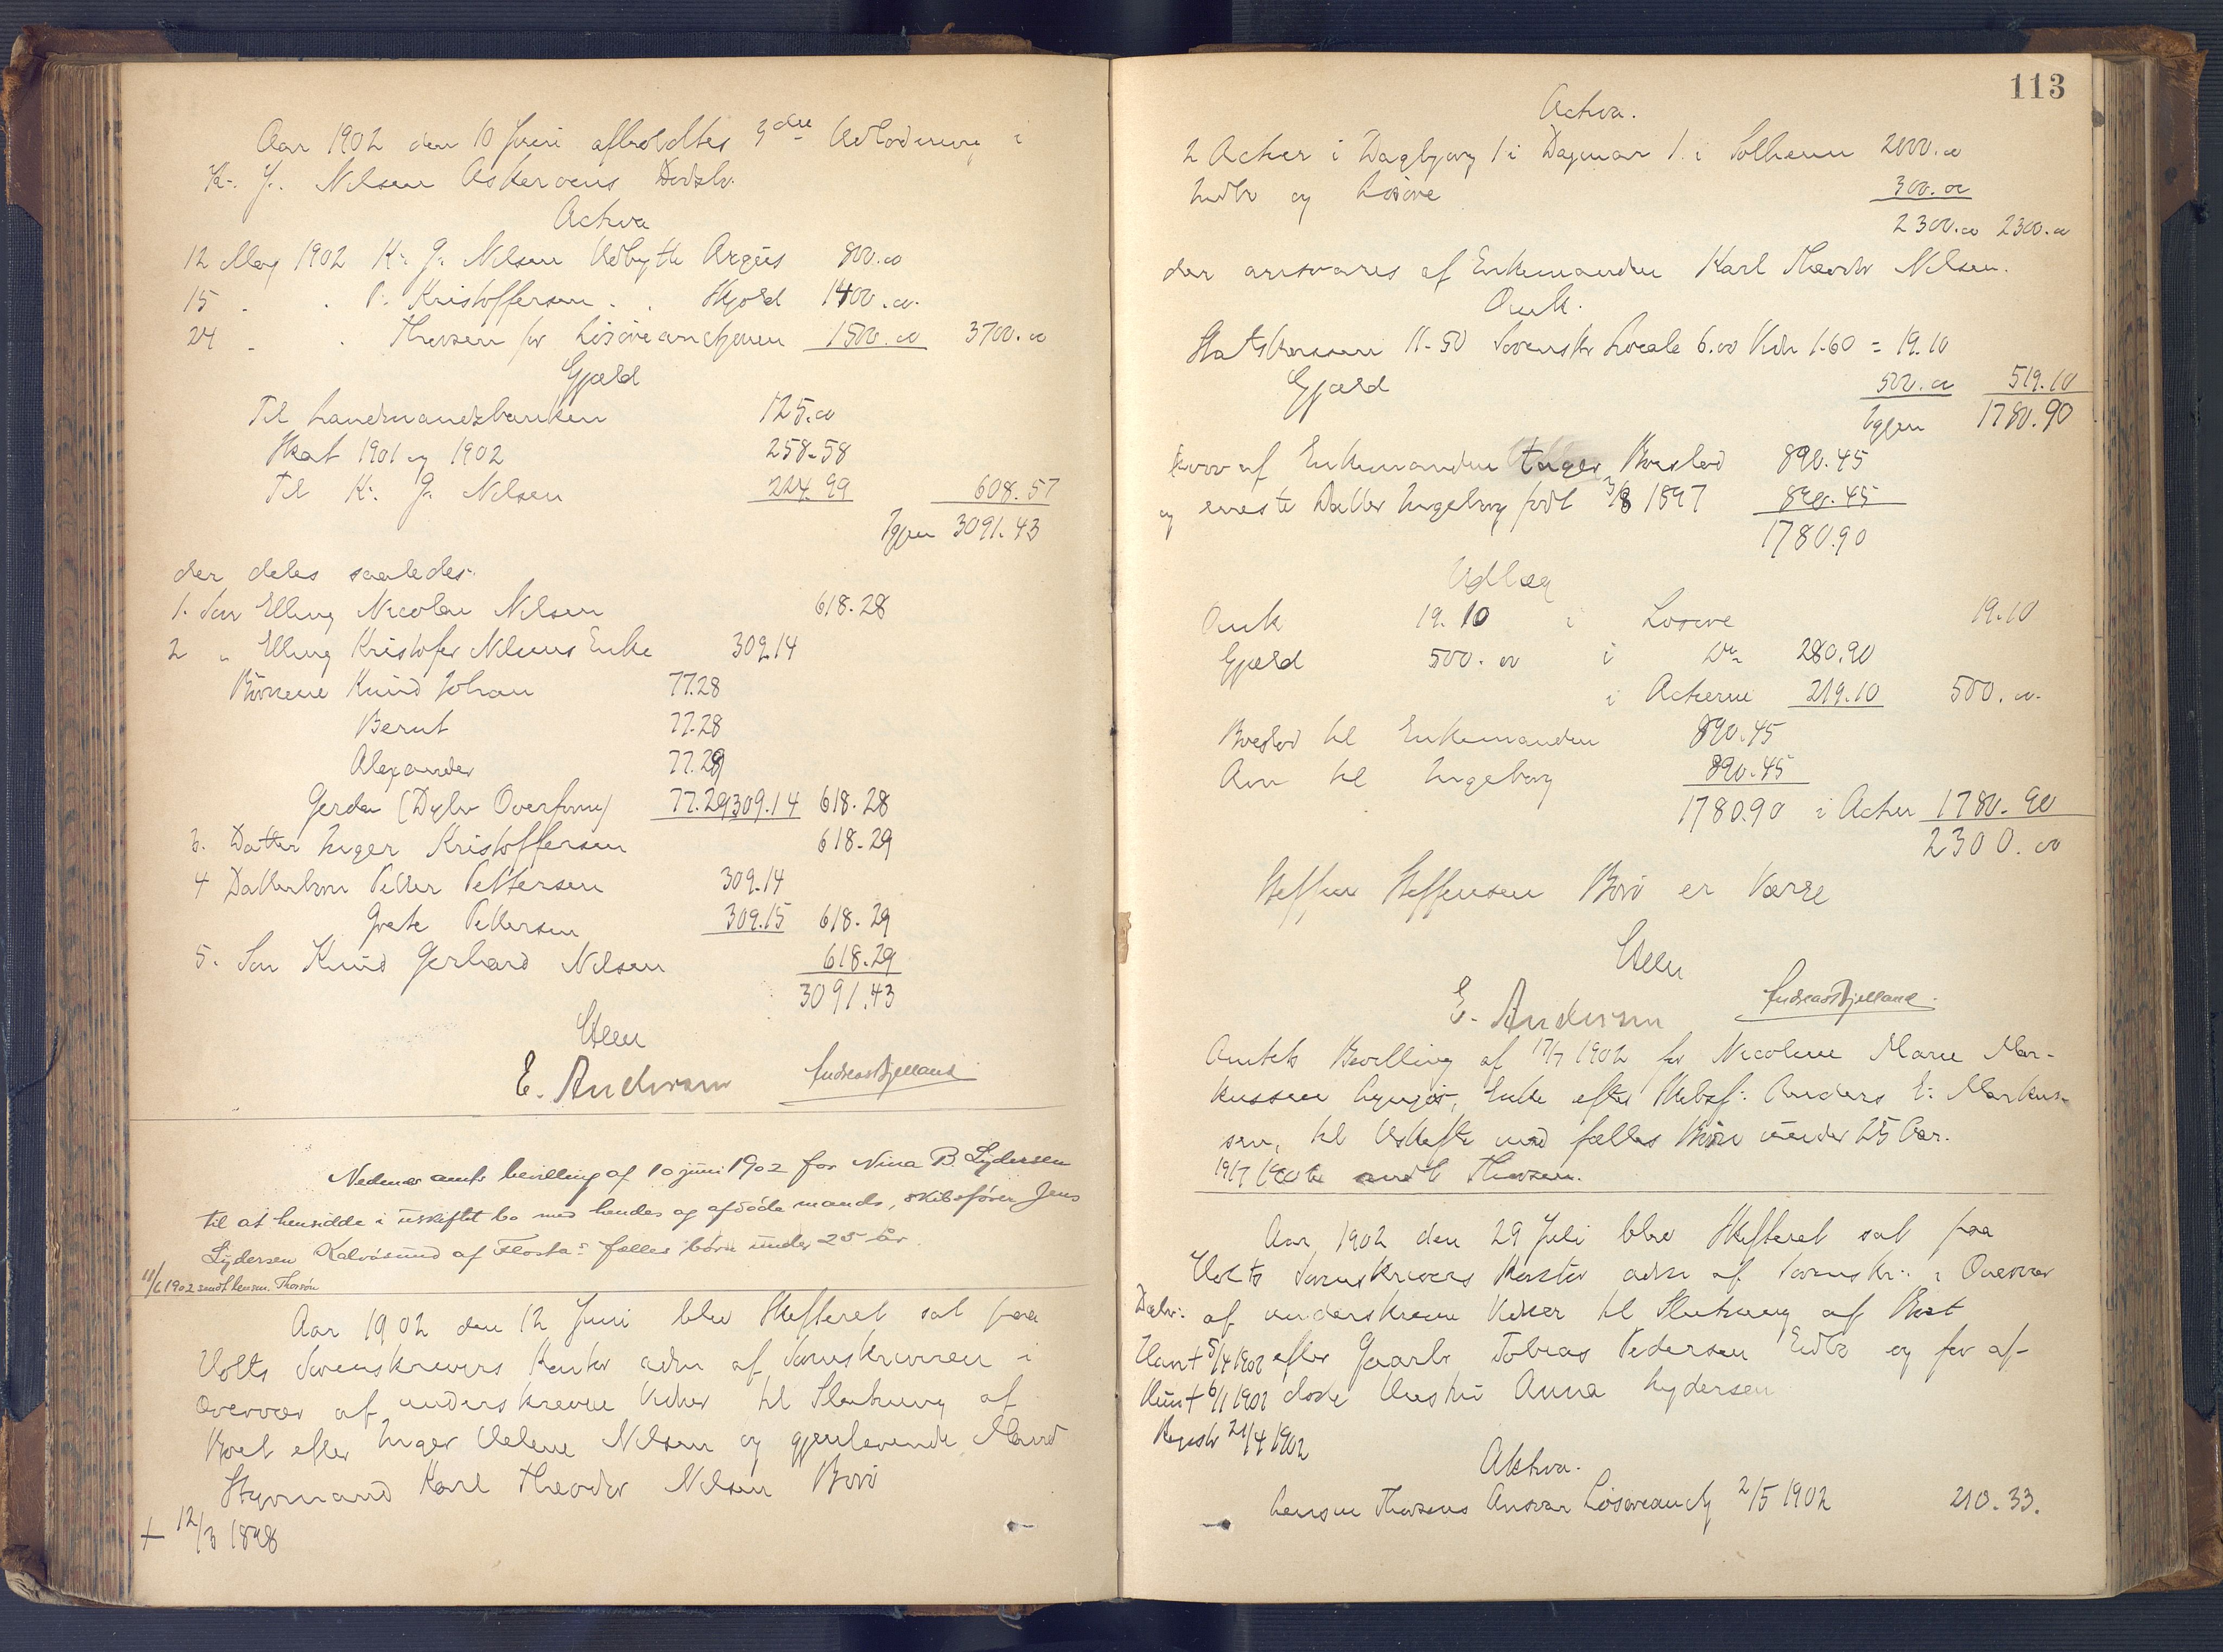 Aar 1902 den 10 Juni afholdtes 3die Udlodning i
K. J. Nilsen Askerøens Dødsbo.
Activa
12 May 1902 K. J. Nilsen Udbytte Argus 800.00
15 - . P. Kristoffersen . . Skjold 1400.00.
24 - . Thorsen for Løsøreauctionen 1500.00 3700.00
Gjæld
Til Landmandsbanken 125.00
Skat 1901 og 1902 258-58
Til K. J. Nilsen 224.99 608.57
Igjen 3091.43
der deles saaledes:
1. Søn Elling Nicolai Nilsen 618.28
2 " Elling Kristofer Nilsens Enke 309.14
Børnene Knud Johan 77.28
Bernt 77.28
Alexander 77.29
Gerda (Dglv Overform) 77.29 309.14 618.28
3. Datter Inger Kristoffersen 618-29
4 Datterbørn Petter Pettersen 309.14
Grete Pettersen 309.15 618.29
5. Søn Knud Gerhard Nilsen 618.29
3091.43
E. Andersen Andreas Bjelland
Nedenæs amts bevilling af 10 juni 1902 for Nina B. Lydersen
til at hensidde i uskiftet bo med hendes og afdøde mands, skibsfører Jens
Lydersen Kalvøsund af Flosta's fælles børn under 25 år.
11/6 1902 sendt lensm. Thorsen
Aar 1902 den 12 Juni blev Skifteret sat paa
Holts Sorenskrivers Kontor adm af Sorenskriveren i
Overvær af underskrevne Vidner til Slutning af
Boet efter Inger Helene Nilsen og gjenlevende Mand
Styrmand Karl Theodor Nilsen Borø
+ 12/3 1898
113
Activa.
2 Actier i Dagbjørg 1 i Dagmar 1. i Solheim 2000.00
Indbo og Løsøre 300.00
2300.00 2300.00
der ansvares af Enkemanden Karl Theodor Nilsen.
Omk.
Statskassen 11-50 Sorenskr Locale 6.00 Vidn 1-60 = 19.10
Gjæld 500.00 519.10
Igjen 1780.90
hvoraf Enkemanden tager Boeslod 890.45
og eneste Datter Ingeborg født 3/8 1897 890.45
1780.90
Udlæg
Omk 19.10 i Løsøre 19.10
Gjæld 500.00 i Do 280.90
i Actierne 219.10 500.00.
Boeslod til Enkemanden 890.45
Arv til Ingeborg 890.45
1780.90 i Actier 1780.90
2300.00
Steffen Steffensen Borø er Værge
E. Andersen Andreas Bjelland
Amtets Bevilling af 17/7 1902 for Nicoline Marie Mar-
kussen Lyngør, Enke efter Skibsf: Anders E: Markus-
sen, til Uskifte med fælles Børn under 25 Aar.
19/7 1902 sendt Thorsen.
Aar 1902 den 29 Juli blev Skifteret sat paa
Holts Sorenskrivers Kontor adm af Sorenskr: i Overvær
Dødv: af underskrevne Vidner til Slutning af Boet
Han + 5/4 1902 efter Gaarbr Tobias Pedersen Eidbo og før af-
Hun + 6/1 1902 døde Hustru Anna Lydersen
Registr 21/4 1902
Aktiva.
Lensm Thorsens Ansvar Løsøreauct 2/5 1902 210.33.